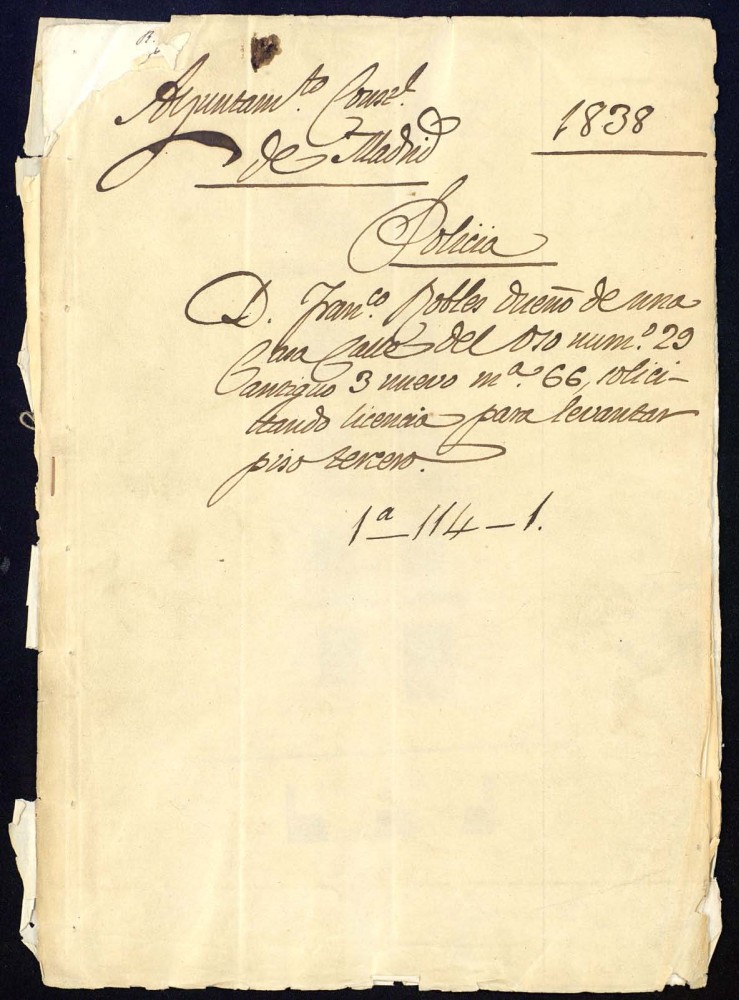 Ayuntam.to Const.l
de Madrid
1838
Policia
D. Fran.co Robles dueño de una
casa Calle del Oso num.o 29
antiguo 3 nuevo m.a 66, solici-
tando licencia para levantar
piso tercero.
1a - 114 - 1.